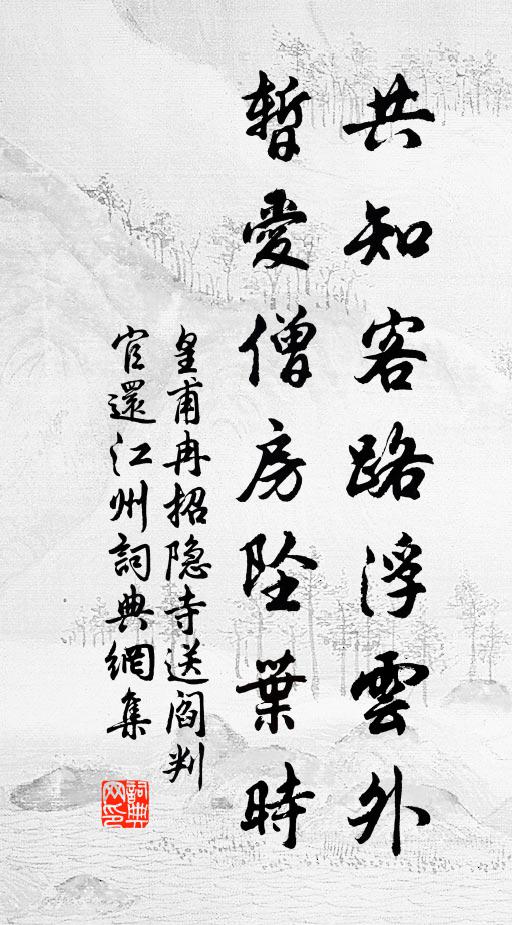 共知客路浮雲外
暫愛僧房坠葉時
皇甫冉招隐寺送阎判
官還江州詞典網集
詞典网印